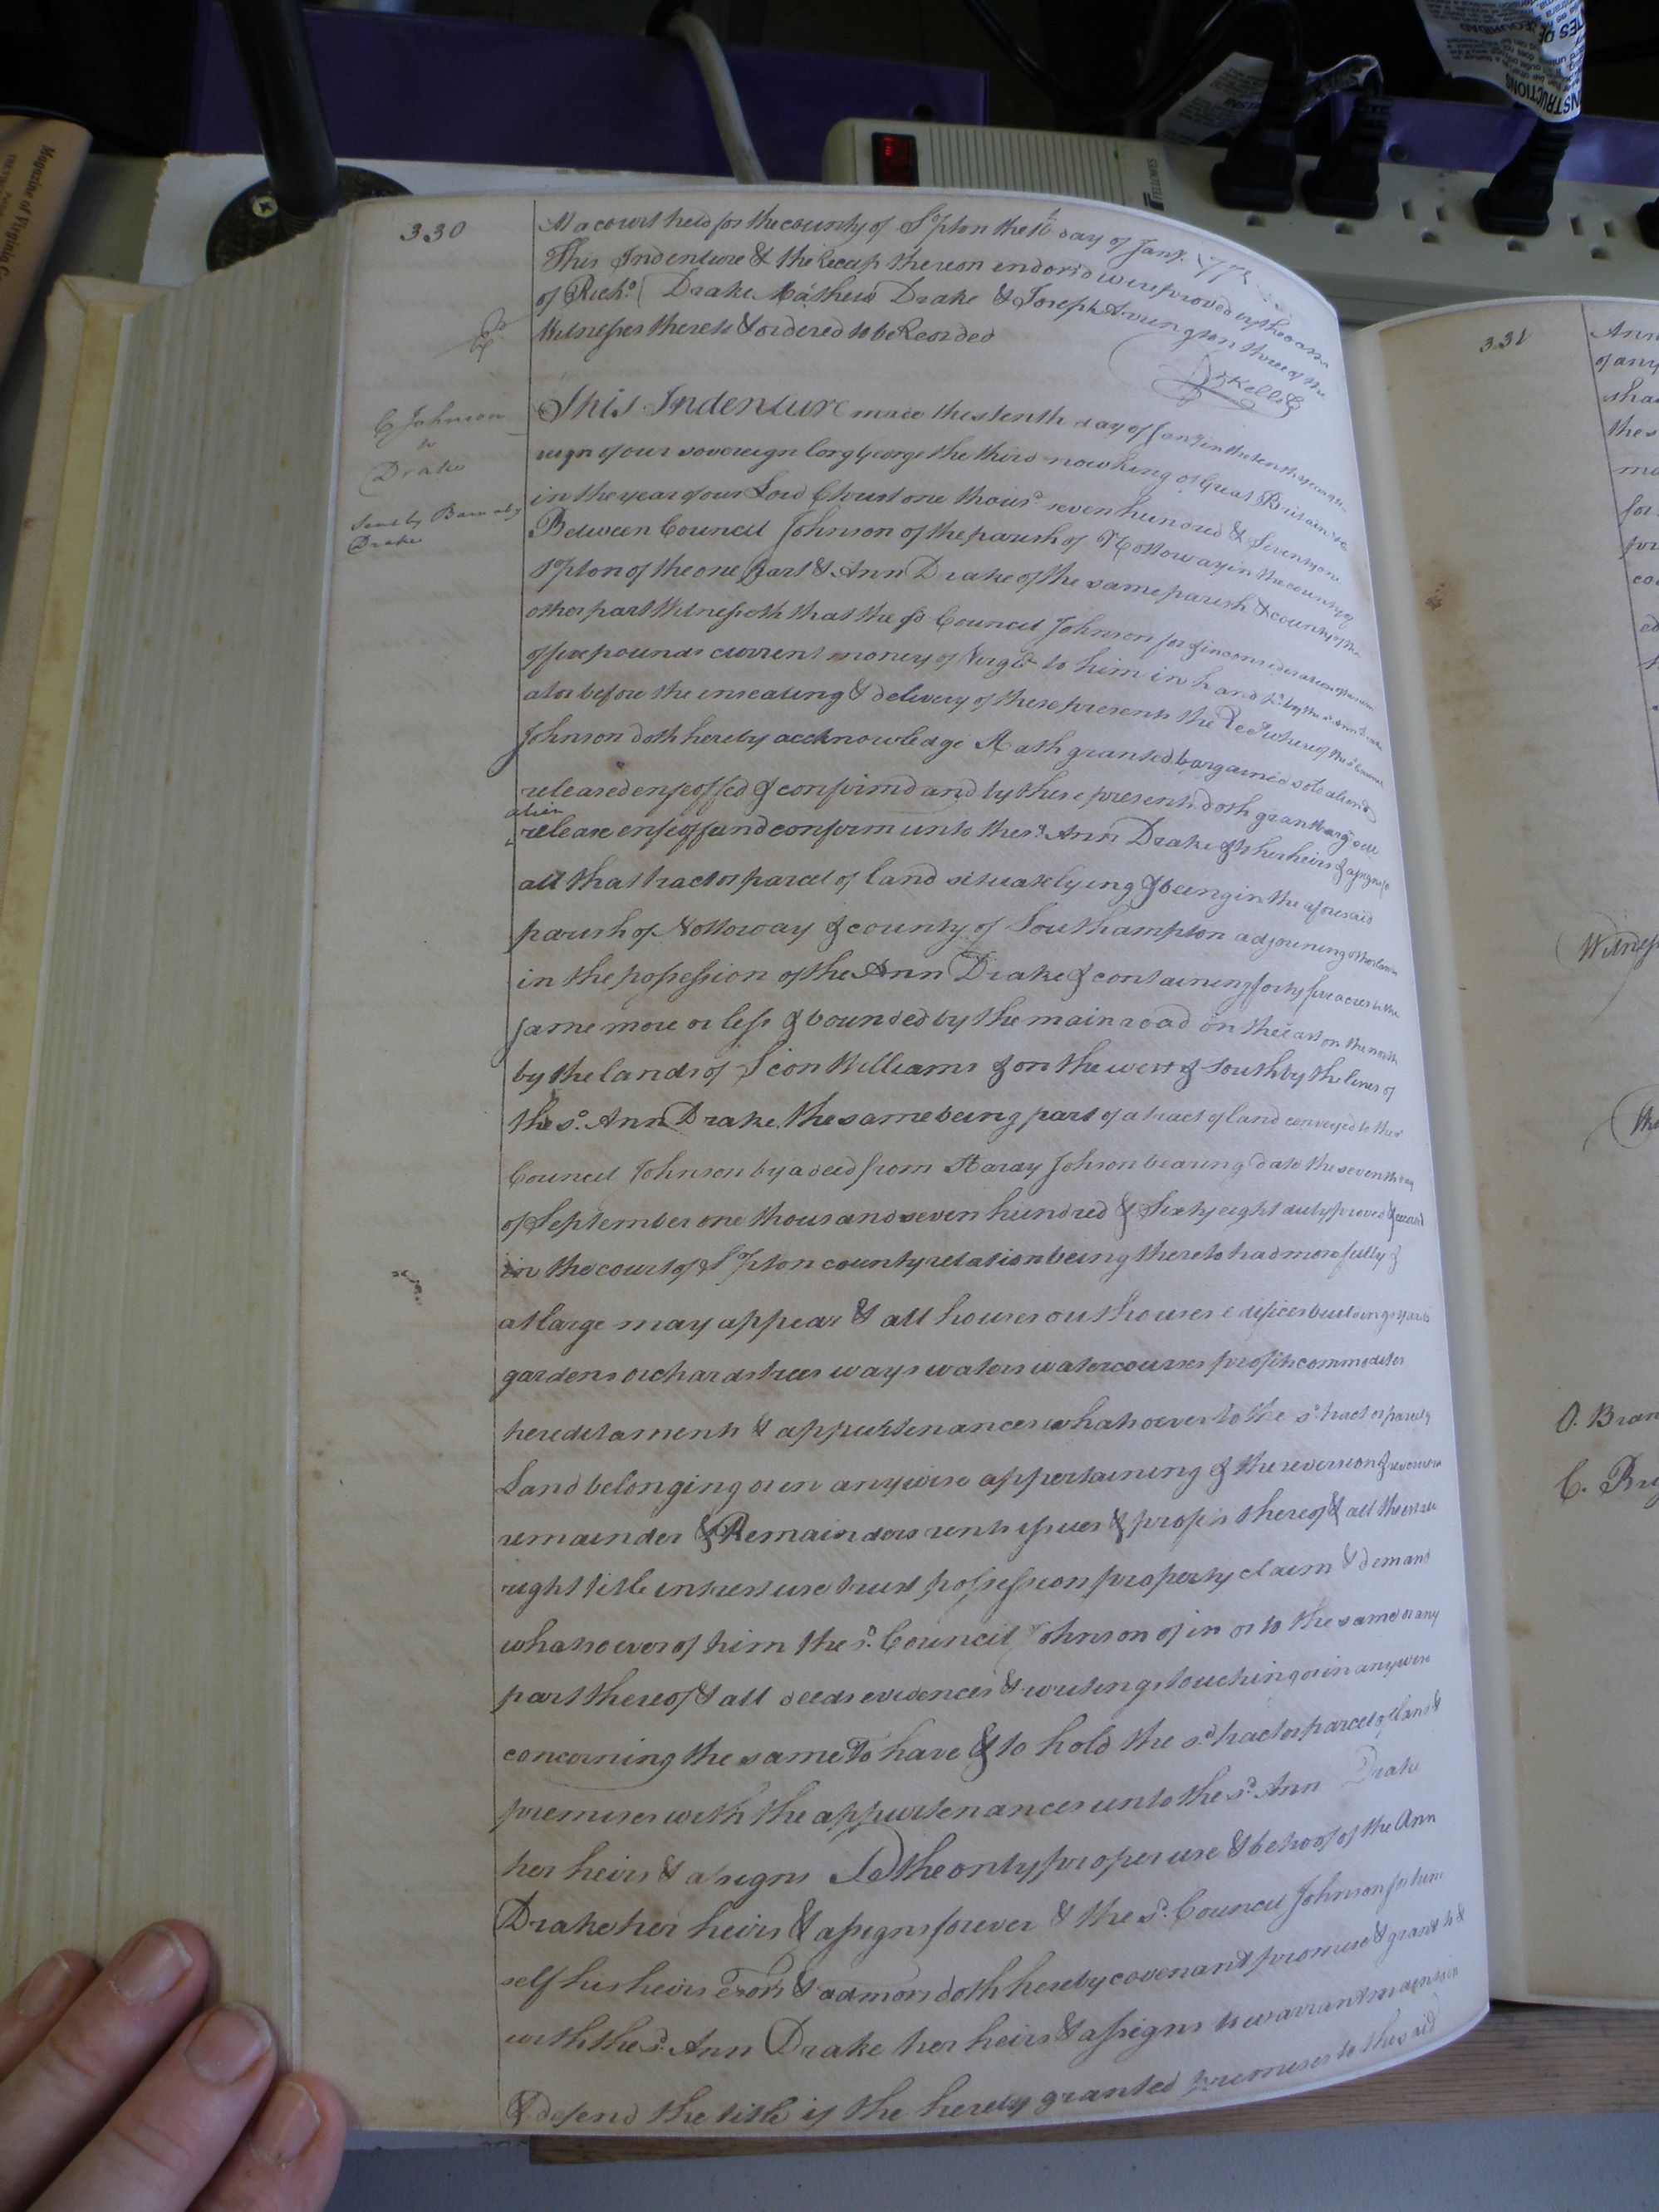 330
At a court held for the county of S°pton the 16 day of Jany. 177
This Indenture & the Receip thereon endors'd were proved by the oaths
of Richd. Drake Mathew Drake & Joseph Arrington three of the
Witnesses thereto & ordered to be Recorded
Kello
C Johnson
to
Drake
Sent by Barnaby
Drake
This Indenture made this tenth day of Jany in the tenth year of the
reign of our sovereign lorg George the third now King of Great Britain &c
in the year of our Lord Christ one thousd. seven hundred & Seventy one
Between Council Johnson of the parish of Nottoway in the county of
S°pton of the one part & Ann Drake of the same parish & county of the
other part Witnesseth that the sd Council Johnson for & in consideration of the sum
of five pounds current money of Virga to him in hand pd. by the sd. Ann Drake
at or before the ensealing & delivery of these presents the Rect. whereof the sd. Council
Johnson doth hereby acknowledge Hath granted bargained sold aliend
released enfeoffed & confirmd and by these presents doth grant barg. sell
alien
release enfeoff and confirm unto the sd. Ann Drake & to her heirs & assigns
all that tract or parcel of land situate lying & being in the aforesaid
parish of Nottoway & county of Southampton adjoining other land
in the possession of the Ann Drake & containing forty five acres be the
same more or less & bounded by the main road on the east on the north
by the lands of Sion Williams & on the west & south by the lines of
the sd. Ann Drake, the same being part of a tract of land conveyed to the sd
Council Johnson by a deed from Johnson bearing date the seventh day
of September one thousand seven hundred & Sixty eight duly proved & record
in the court of S°pton county relation being thereto had more fully &
at large may appear & all houses outhouses edifices buildings yards
gardens orchards trees ways waters watercourses profits commodities
hereditaments & appurtenances whatsoever to the sd. tract or parcel of
Land belonging or in anywise appertaining & the reversion & reversions
remainder & Remainders rents issues & profits thereof & all the estate
right title interest use trust possession property claim & demand
whatsoever of him the sd. Council Johnson of in or to the same or any
part thereof & all deeds evidences & writings touching or in anywise
concerning the same To have & to hold the sd. tract or parcel of land &
premises with the appurtenances unto the sd. Ann Drake
her heirs & assigns To the only proper use & behoof of the Ann
Drake her heirs & assigns forever & the sd. Council Johnson for him
self his heirs Exors & admors doth hereby covenant promise & grant to &
with the sd. Ann Drake her heirs & assigns to warrant maintain
& defend the title of the hereby granted premises to the said
331
Ann
of any
sha
the s
for
Witness
O. Bran
C. Bri
Magazine of Virginia
INSTRUCTIONS